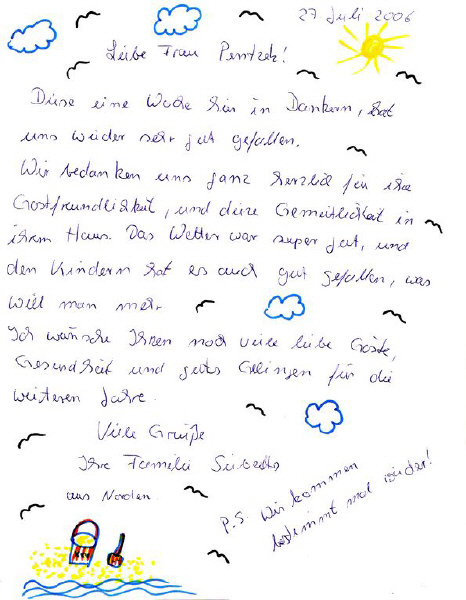 27 Juli 2006
Liebe Frau Pentzek!
Diese eine Woche hier in Dankern, hat
uns wieder sehr gut gefallen.
Wir bedanken uns ganz herzlich für ihre
Gastfreundlichkeit, und diese Gemütlichkeit in
ihrem Haus. Das Wetter war super gut, und
den Kindern hat es auch gut gefallen, was
will man mehr.
Ich wünsche Ihnen noch viele liebe Gäste,
Gesundheit und gutes Gelingen für die
weiteren Jahre.
Viele Grüße
Ihre Familie
aus Norden.
P.S. Wir kommen
bestimmt mal wieder!